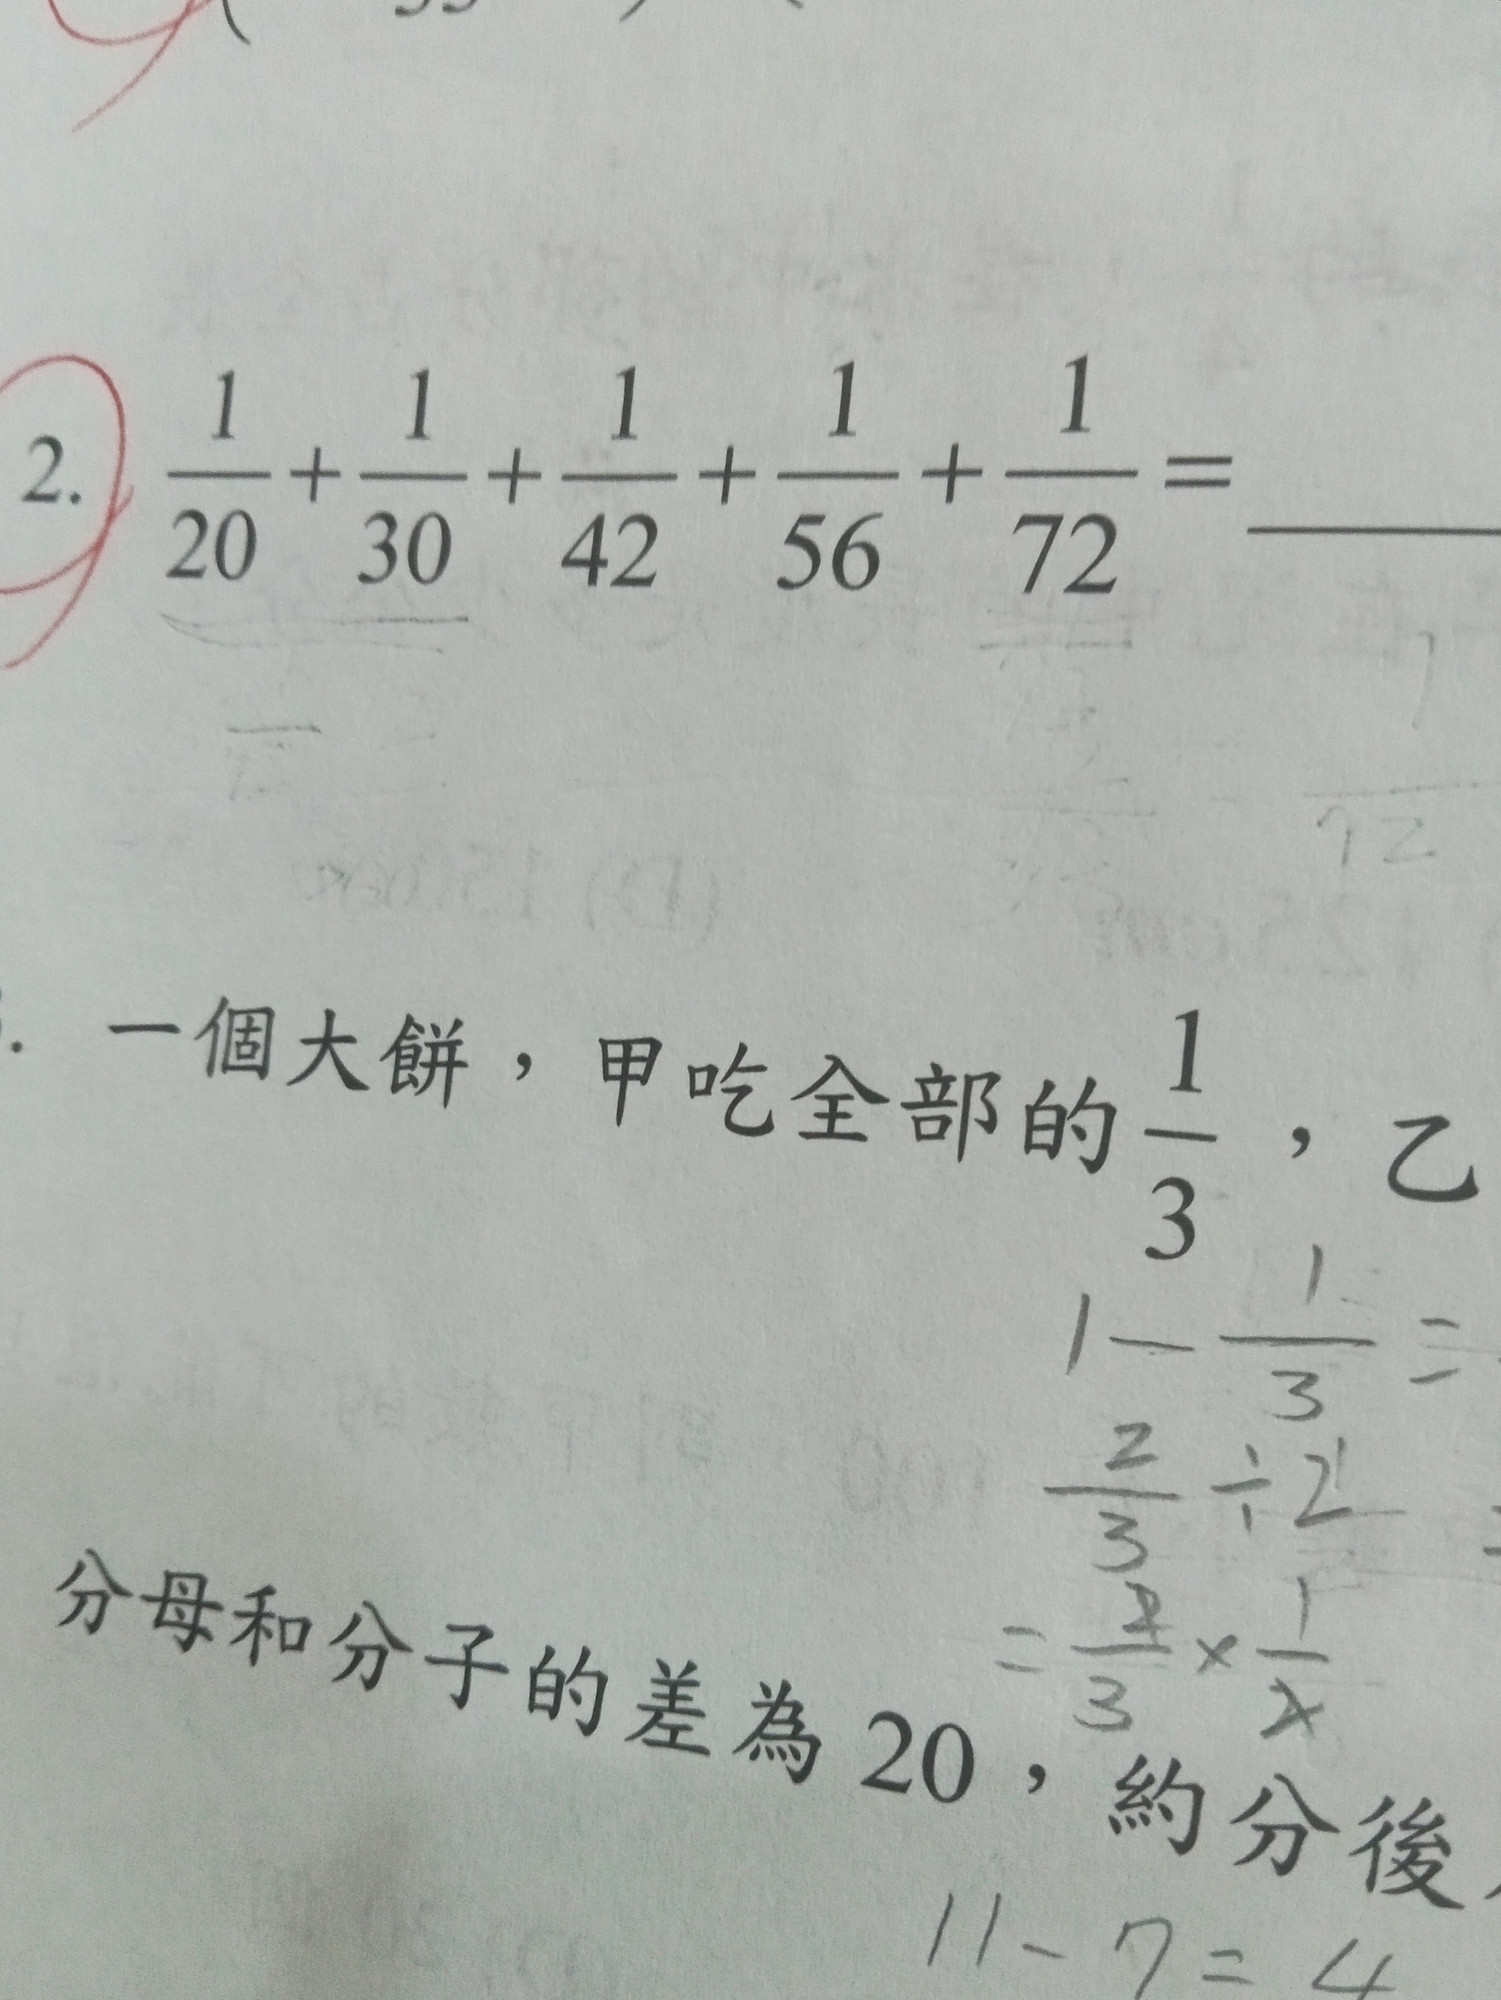 2. 1/20 + 1/30 + 1/42 + 1/56 + 1/72 = ______
1
72
. 一個大餅，甲吃全部的 1/3 ，乙
1 - 1/3 =
2/3 ÷ 2 =
= 2/3 × 1/2
分母和分子的差為 20，約分後
11 - 7 = 4